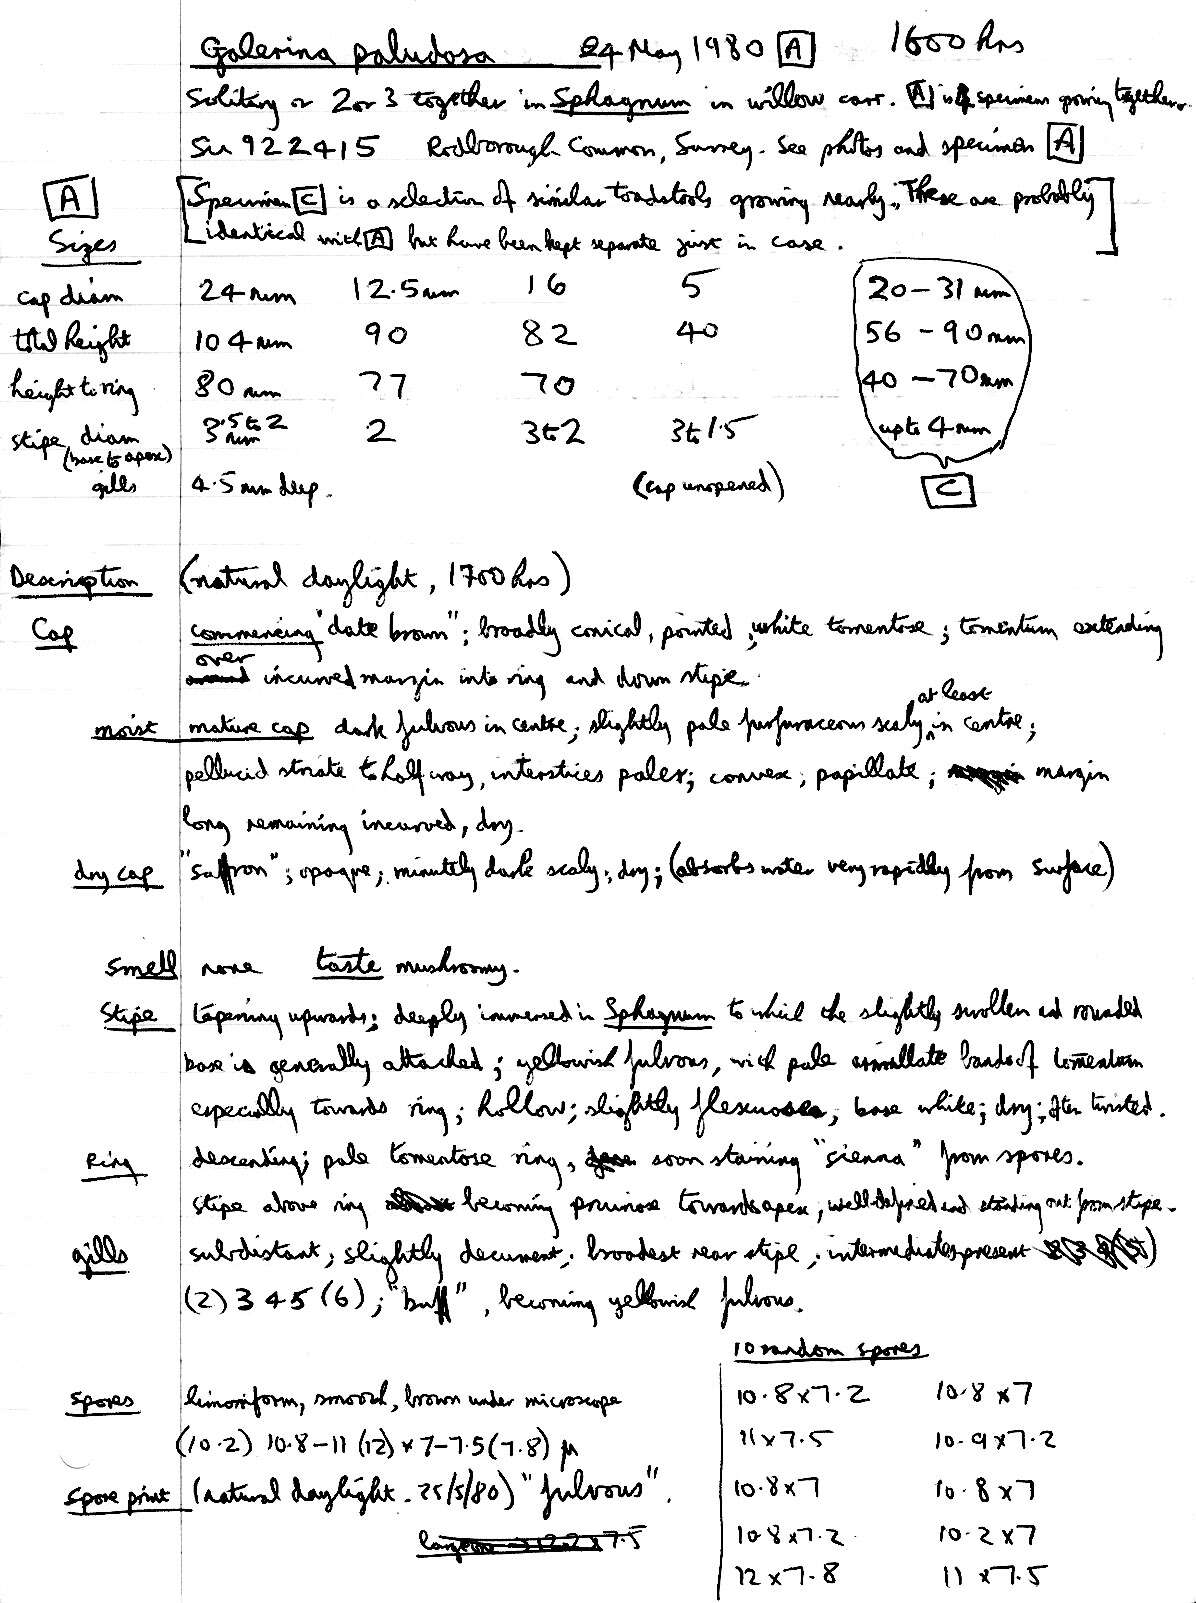 Galerina paludosa 24 May 1980 [A] 1600 hrs
Solitary or 2 or 3 together in Sphagnum in willow carr. [A] is 4 specimens growing together.
SU 922415 Rodborough Common, Surrey. See photos and specimen [A]
[A] [Specimen [C] is a selection of similar toadstools growing nearby. These are probably
Sizes identical with [A] but have been kept separate just in case.]
cap diam 24 mm 12.5 mm 16 5 20-31 mm
total height 104 mm 90 82 40 56-90 mm
height to ring 80 mm 77 70 40-70 mm
stipe diam 3.5 to 2 mm 2 3 to 2 3 to 1.5 up to 4 mm
(base to apex)
gills 4.5 mm deep. (cap unopened) [C]
Description (natural daylight, 1700 hrs)
Cap commencing "date brown"; broadly conical, pointed, white tomentose; tomentum extending
over incurved margin into ring and down stipe.
moist mature cap dark fulvous in centre; slightly pale furfuraceous scaly, at least in centre;
pellucid striate to halfway, interstices paler; convex; papillate; margin
long remaining incurved, dry.
dry cap "saffron"; opaque; minutely dark scaly; dry; (absorbs water very rapidly from surface)
smell none taste mushroomy.
Stipe tapering upwards; deeply immersed in Sphagnum to which the slightly swollen and rounded
base is generally attached; yellowish fulvous, with pale annullate bands of tomentum
especially towards ring; hollow; slightly flexuose; base white; dry; often twisted.
Ring descending; pale tomentose ring, soon staining "sienna" from spores.
stipe above ring becoming pruinose towards apex, well-defined and standing out from stipe.
gills subdistant; slightly decurrent; broadest near stipe; intermediates present
(2) 3 4 5 (6); "buff", becoming yellowish fulvous.
10 random spores
spores limoniform, smooth, brown under microscope
(10.2) 10.8-11 (12) x 7-7.5 (7.8) µ
spore print (natural daylight - 25/5/80) "fulvous".
10.8 x 7.2 10.8 x 7
11 x 7.5 10.9 x 7.2
10.8 x 7 10.8 x 7
10.8 x 7.2 10.2 x 7
12 x 7.8 11 x 7.5